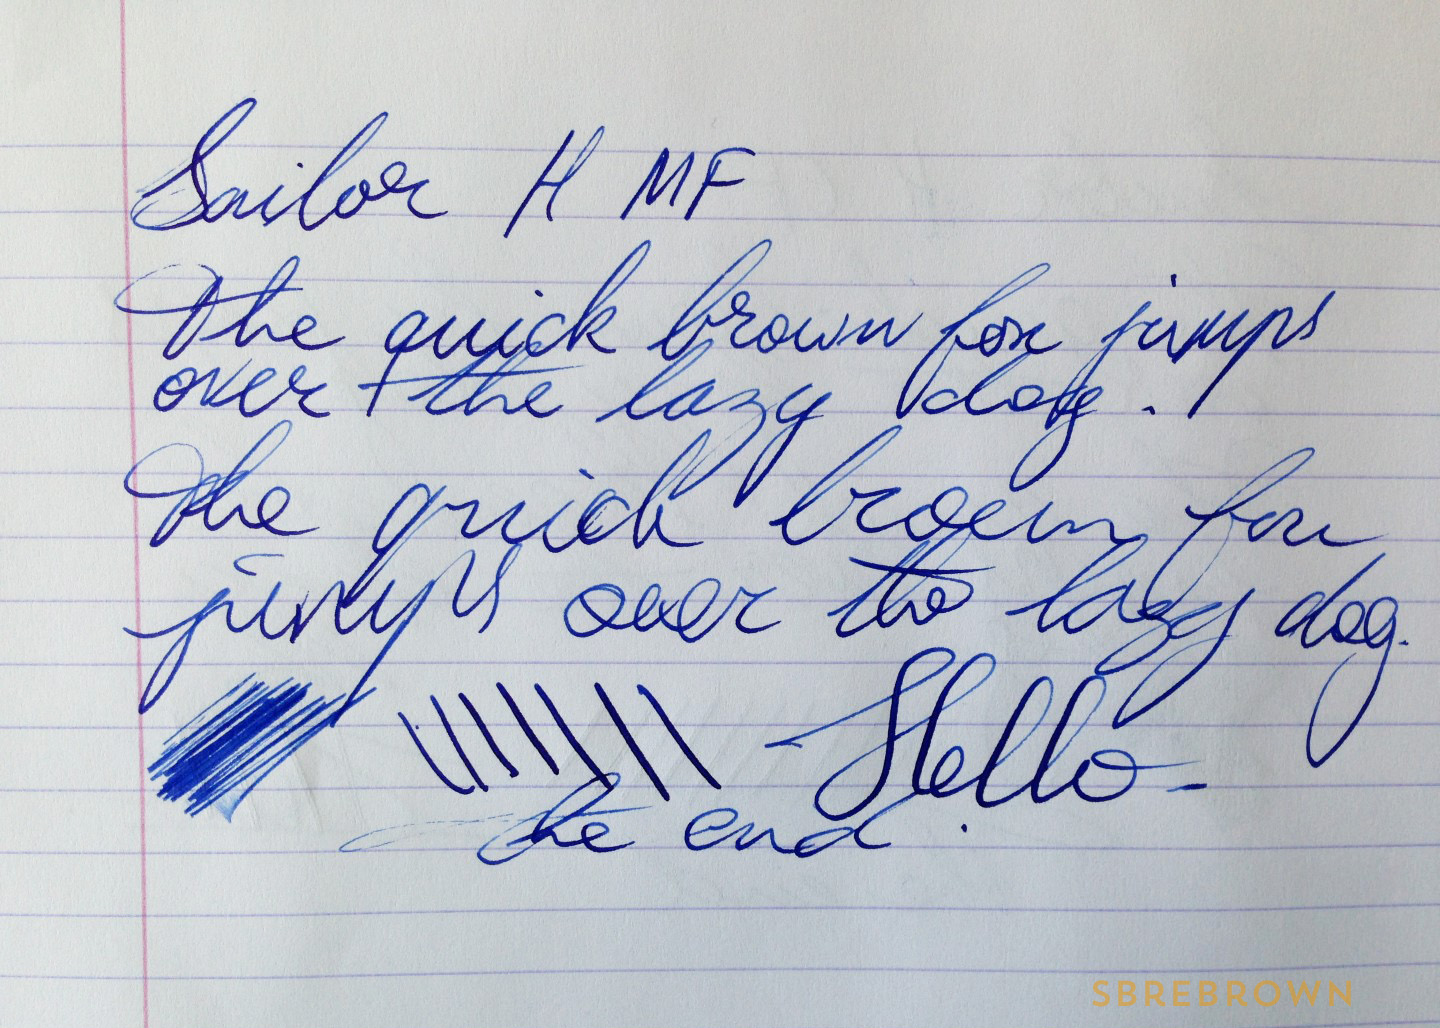 Sailor H MF
The quick brown fox jumps
over the lazy dog.
The quick brown fox
jumps over the lazy dog.
Hello
the end.
SBREBROWN